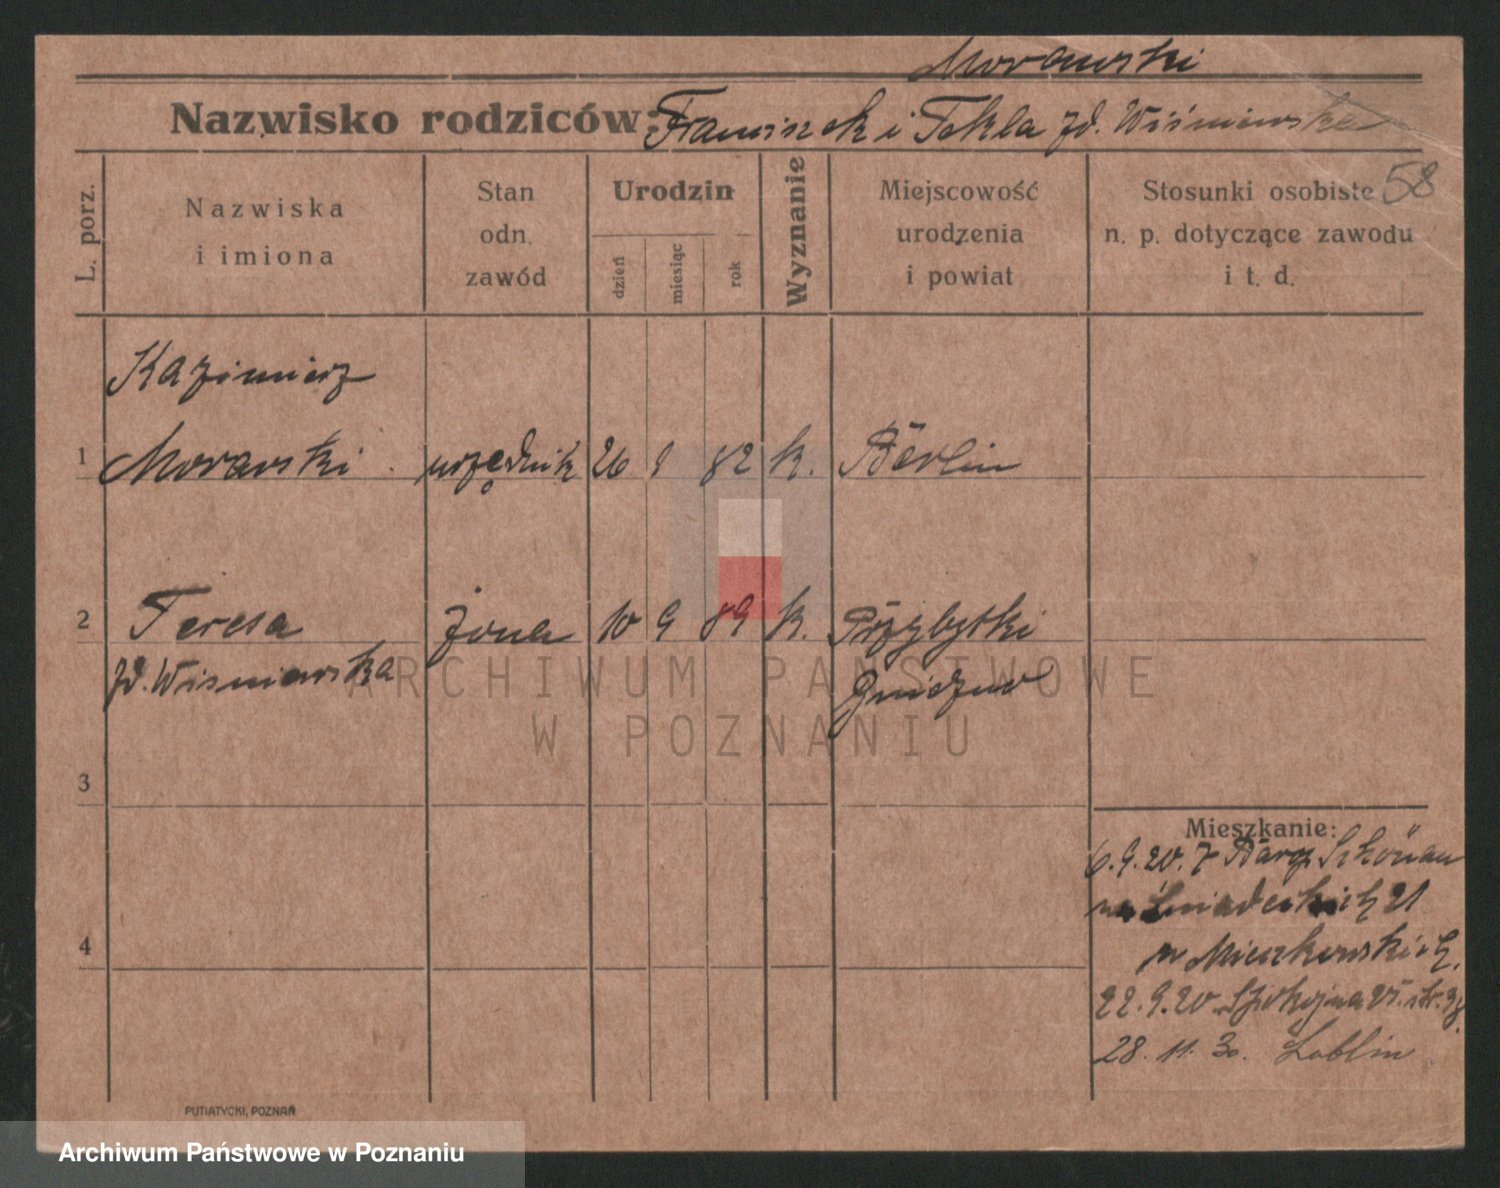 Morawski
Nazwisko rodziców: Franciszek i Tekla zd. Wiśniewska
58
L. porz.
Nazwiska
i imiona
Stan
odn.
zawód
Urodzin
dzień
miesiąc
rok
Wyznanie
Miejscowość
urodzenia
i powiat
Stosunki osobiste
n. p. dotyczące zawodu
i t. d.
Kazimierz
1 Morawski urzędnik 26 82 k. Berlin
2 Teresa żona 10 9 89 k. Przybytki
zd. Wiśniewska Gniezno
3
4
Mieszkanie:
6.9.20. Schönau
na Śniadeckich 21
Mieszkowskich
22.9.20. Spokojna
28. 11. 30. Lublin
PUTIATYCKI, POZNAŃ
ARCHIWUM PAŃSTWOWE
W POZNANIU
Archiwum Państwowe w Poznaniu